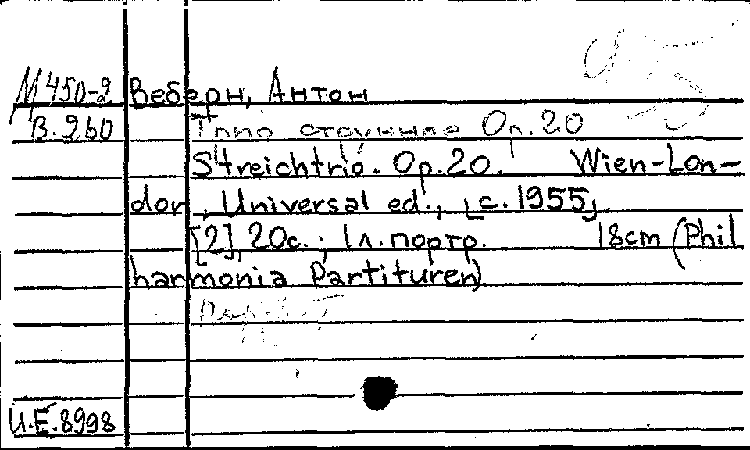 М450-2 Веберн, Антон
В.960 Трио струнное Ор.20
Streichtrio. Op.20. Wien-Lon-
don, Universal ed., [c.1955]
[2], 20с.; 1л.портр. 18cm (Phil
harmonia Partituren)
U.E.8998